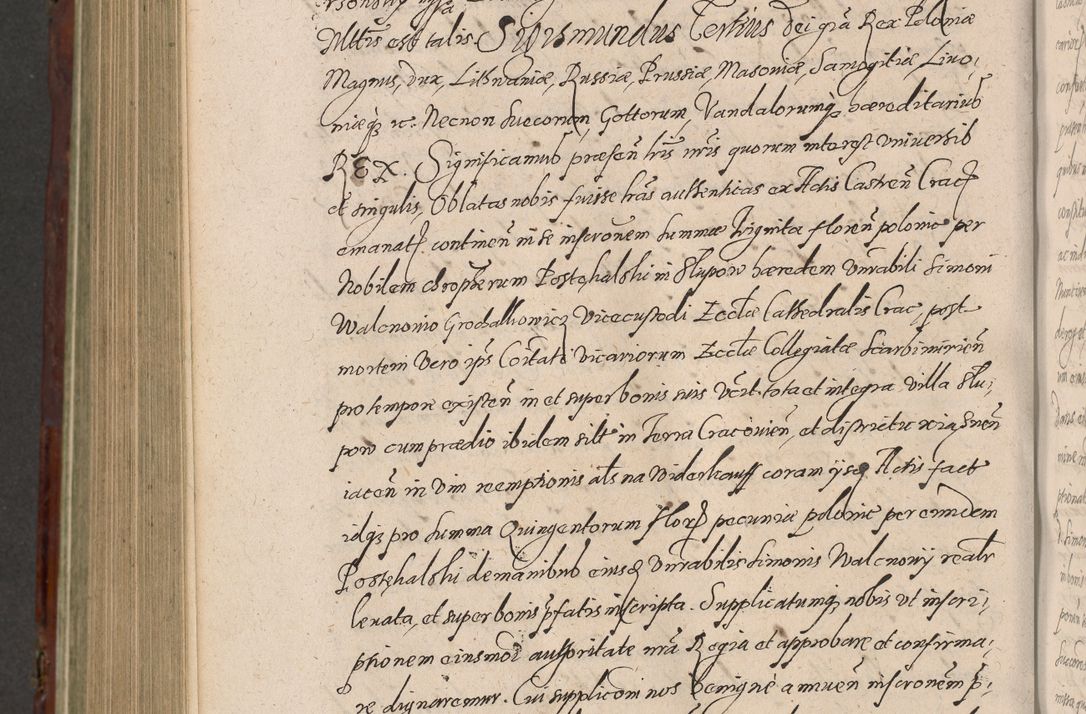 Mttis est talis Sigismundus Tertius Dei gra Rex Poloniæ
Magnus, dux, Lithvaniæ, Russiæ, Prussiæ, Masoviæ, Samogitiæ, Livo,
niæq; ic. Necnon Suecorum, Gottorum, Vandalorumq; hæreditarius
REX. Significamus præsen lris nris quorum interest vniversis
et singulis, Oblatas nobis fuisse lras authenticas ex Actis Castren Crac
emanat continen in se inscronem summæ Trigintæ floren polonic per
Nobilem chropherum Postękalski in Slupow hæredem Vnrabili Simoni
Walcnowio Grochalkowicz Vicecustodi Ecclæ Cathedralis Crac, post
mortem Vero ips Coitati Vicariorum Ecclæ Collegiatæ Scarbimirien
pro tempore existen in et super bonis suis Vctit. tota et integra villa Slu,
pow cum prædio ibidem silt in Terra Cracovien, et districtu xiąznen
iacen in vim reemptionis als na Widerkauff coram ijsq Actis fact
idq; pro summa Quingentorum flor pecuniæ polonic per eundem
Postękalski de manibus eiusq Vnrabilis Simonis Walcnowij realr
levata, et super bonis pfatis inscripta. Supplicatumq; nobis vt inscri,
ptionem eiusmodi authoritate nra Regia et approbare et confirma,
re dignaremur. Cui suppliconi nos benigne annuen inscronem p,